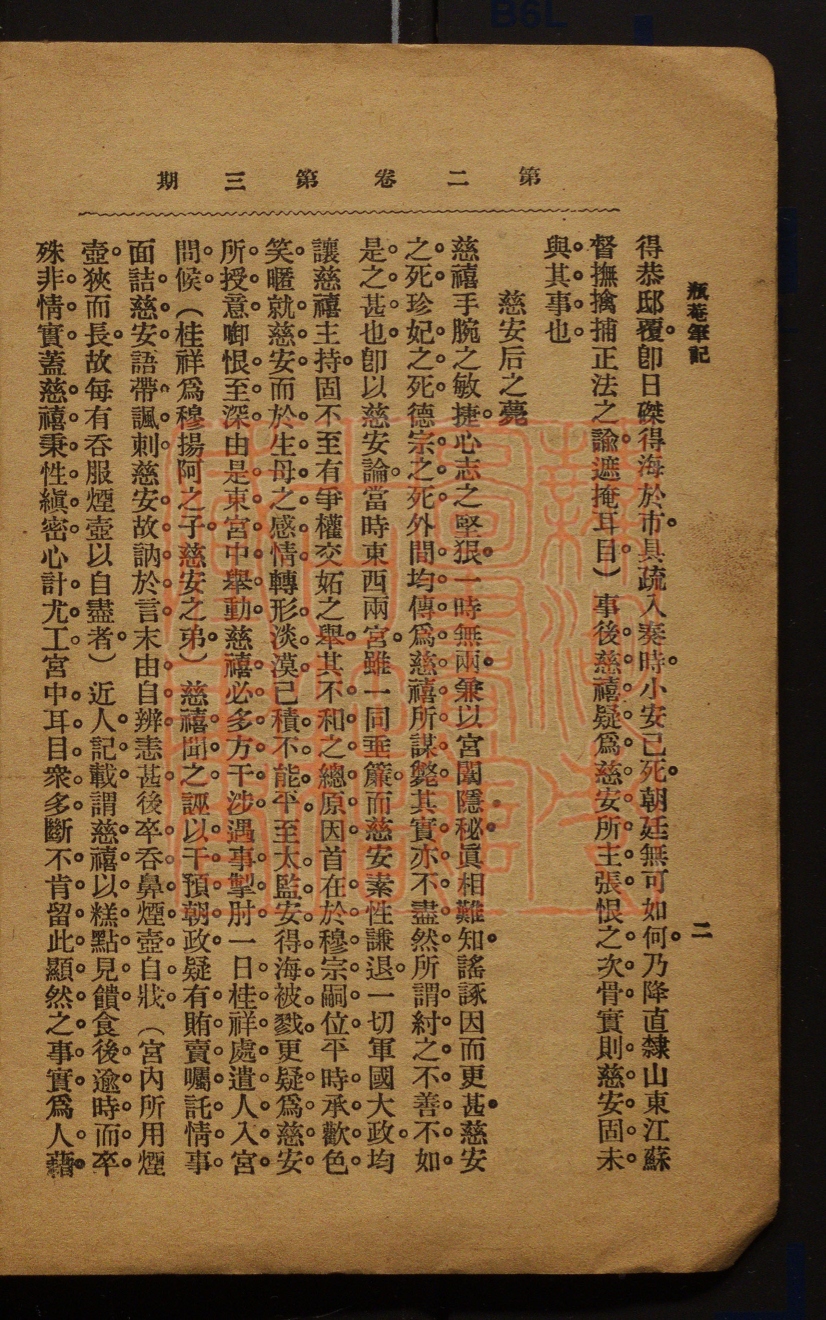 第二卷第三期
瓶菴筆記
二
得恭邸覆卽日磔得海於市具疏入奏時小安已死朝廷無可如何乃降直隸山東江蘇
督撫擒捕正法之諭遮掩耳目）事後慈禧疑爲慈安所主張恨之次骨實則慈安固未
與其事也
慈安后之薨
慈禧手腕之敏捷心志之堅狠一時無兩兼以宮闈隱秘眞相難知謠諑因而更甚慈安
之死珍妃之死德宗之死外間均傳爲慈禧所謀斃其實亦不盡然所謂紂之不善不如
是之甚也卽以慈安論當時東西兩宮雖一同垂簾而慈安素性謙退一切軍國大政均
讓慈禧主持固不至有爭權交妬之舉其不和之總原因首在於穆宗嗣位平時承歡色
笑暱就慈安而於生母之感情轉形淡漠已積不能平至太監安得海被戮更疑爲慈安
所授意啣恨至深由是東宮中舉動慈禧必多方干涉遇事掣肘一日桂祥處遣人入宮
問候（桂祥爲穆揚阿之子慈安之弟）慈禧聞之誣以干預朝政疑有賄賣囑託情事
面詰慈安語帶諷刺慈安故訥於言末由自辨恚甚後卒吞鼻煙壺自戕（宮內所用煙
壺狹而長故每有吞服煙壺以自盡者）近人記載謂慈禧以糕點見饋食後逾時而卒
殊非情實蓋慈禧秉性縝密心計尤工宮中耳目衆多斷不肯留此顯然之事實爲人藉